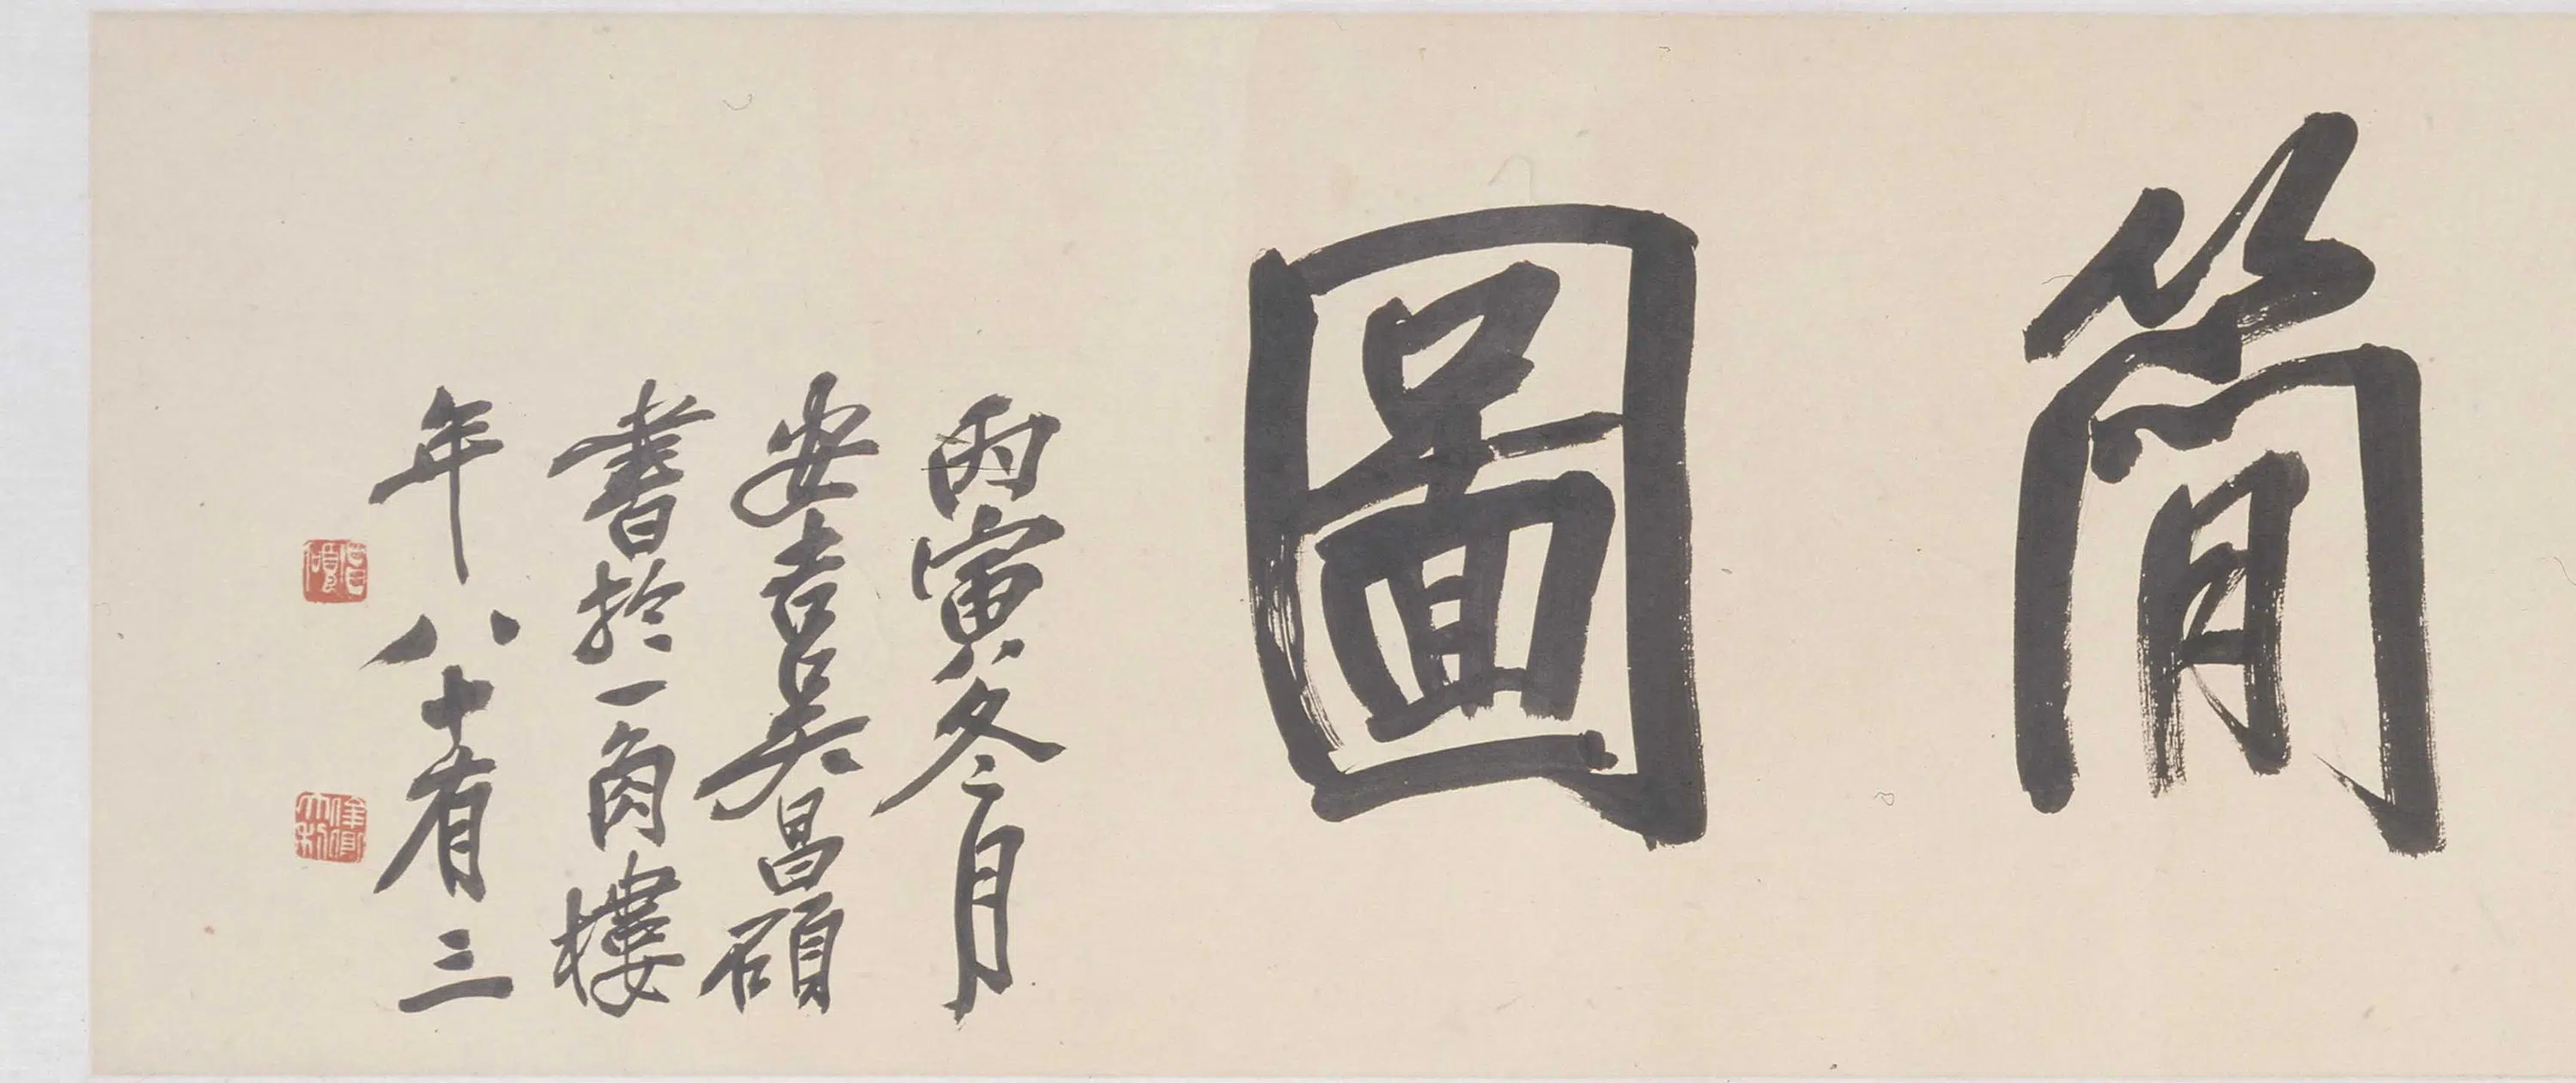 簡圖
丙寅冬月
安吉吳昌碩
書於一角樓
年八十有三